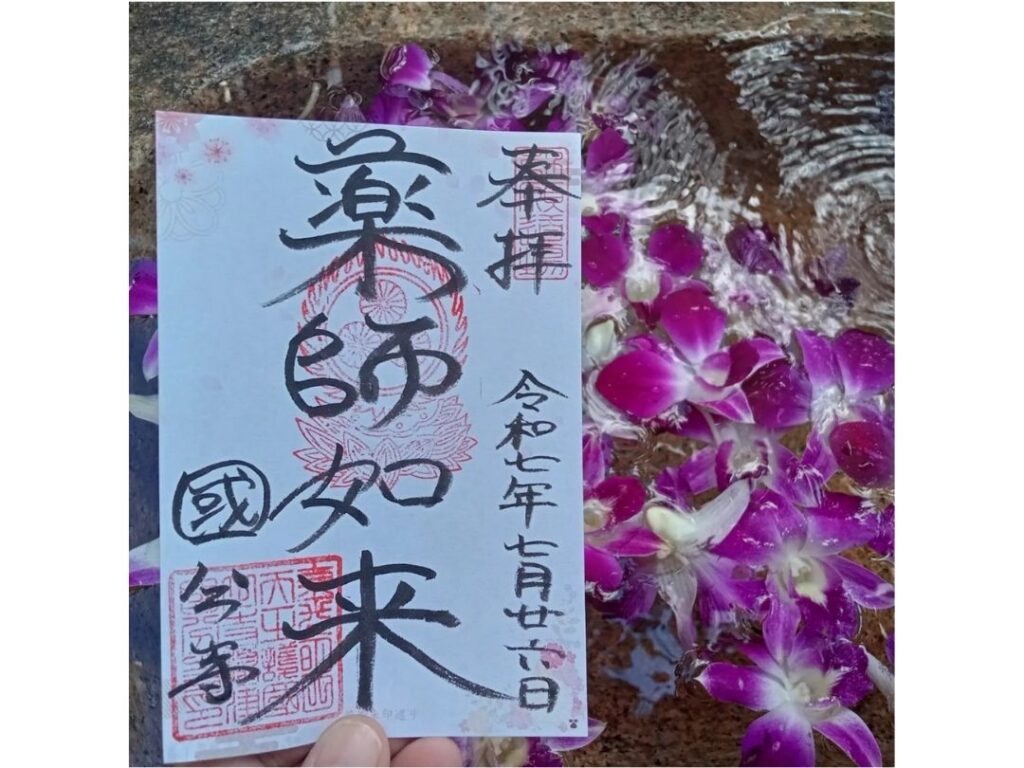 奉拝
令和七年七月廿六日
薬師如来
國分寺